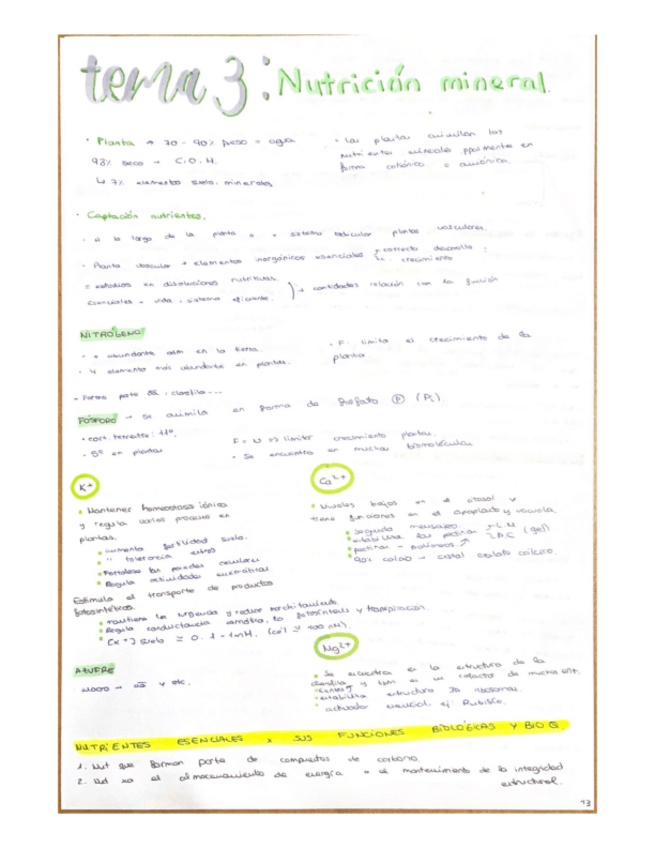 tema 3: Nutrición mineral.
· Planta → 70 - 90% peso = agua
93% seco → C.O.H.
↳ 7% elementos suelo. minerales
· Las plantas asimilan los
nutrientes minerales ppalmente en
forma catiónica o aniónica.
· Captación nutrientes.
· a lo largo de la planta o sistema radicular plantas vasculares.
· Planta vascular → elementos inorgánicos esenciales correcto desarrollo
crecimiento
= estudios en disoluciones nutritivas.
esenciales - vida, sistema eficiente.
→ cantidades relación con la función
NITRÓGENO
· + abundante atm en la tierra.
· 4 elemento más abundante en plantas.
· F: limita el crecimiento de la
planta.
- Forma parte aa, clorofila...
FÓSFORO → se asimila en forma de fosfato Ⓟ (Pi).
· cort. terrestre: 11º.
- 5º en plantas
F = N => limitar crecimiento plantas.
· Se encuentra en muchas biomoléculas
K+
· Mantener homeostasis iónica
y regula varios procesos en
plantas.
· aumenta fertilidad suelo.
· " tolerancia estrés
· Fortalece las paredes celulares
· Regula actividades enzimáticas
Estimula el transporte de productos
fotosintéticos.
· mantiene la turgencia y reduce marchitamiento
· Regula conductancia estomática, la fotosíntesis y transpiración.
· [K+] suelo ≃ 0.1 - 1 mM. (cél ≃ 100 mM).
Ca2+
· Niveles bajos en el citosol y
tiene funciones en el apoplasto y vacuola.
· segundo mensajero.
· estabiliza las pectinas (gel)
· 90% calcio - cristal oxalato cálcico.
Mg2+
· Se encuentra en la estructura de la
clorofila y tbm es un cofactor de muchas enz.
· estabiliza estructura ribosomas.
· activador esencial. ej: Rubisco.
AZUFRE
macro → aa y etc.
NUTRIENTES ESENCIALES x SUS FUNCIONES BIOLÓGICAS Y BIOQ.
1. Nut que forman parte de compuestos de carbono.
2. Nut xa el almacenamiento de energía o el mantenimiento de la integridad
estructural.
13